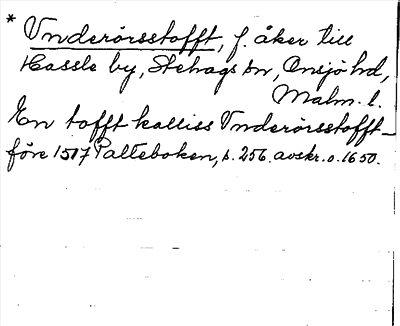 * Vnderörsstofft, f. åker till
Hassle by, Stehags sn, Onsjö hd,
Malm. l.
En tofft kalliss Vnderörsstofft –
före 1517 Palteboken, s. 256. avskr. o. 1650.